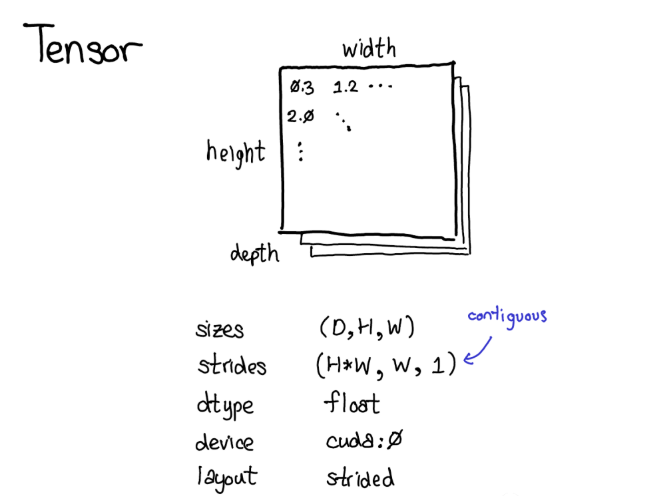 Tensor
width
0.3 1.2 ...
2.0 ⋱
height ⋮
depth
contiguous
sizes (D,H,W)
strides (H*W, W, 1)
dtype float
device cuda:0
layout strided